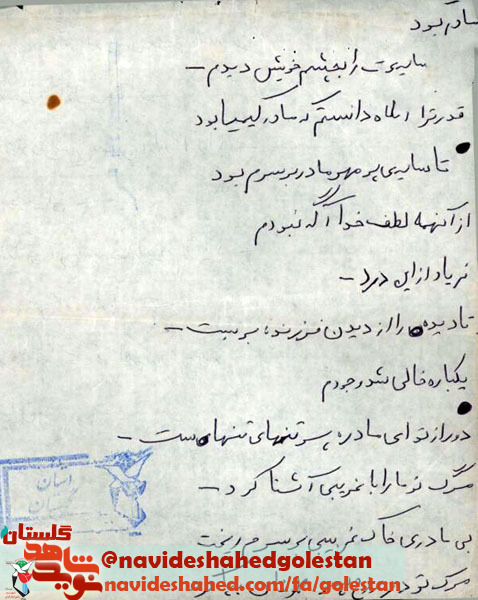 مادر بود
را بچشم خویش دیدم –
قدر ترا آنگاه دانستم که مادر کیمیا بود
تا سایه‌ی پر مهر مادر بر سرم بود
از آنهمه لطف خدا آگه نبودم
فریاد از این درد –
تا دیده را از دیدن فرزند، بربست –
یکباره خالی شد وجودم
دور از تو ای مادر، پسر تنهای تنهاست –
مرگ تو ما را با غریبی آشنا کرد –
بی مادری خاک غریبی بر سرم ریخت
مرگ تو در
استان
گلستان
گلستان
نوید شاهد
@navideshahedgolestan
navideshahed.com/fa/golestan